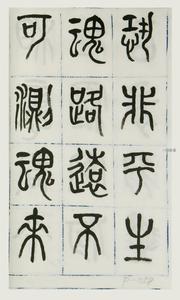 恐非平生
魂路遠不
可測魂來